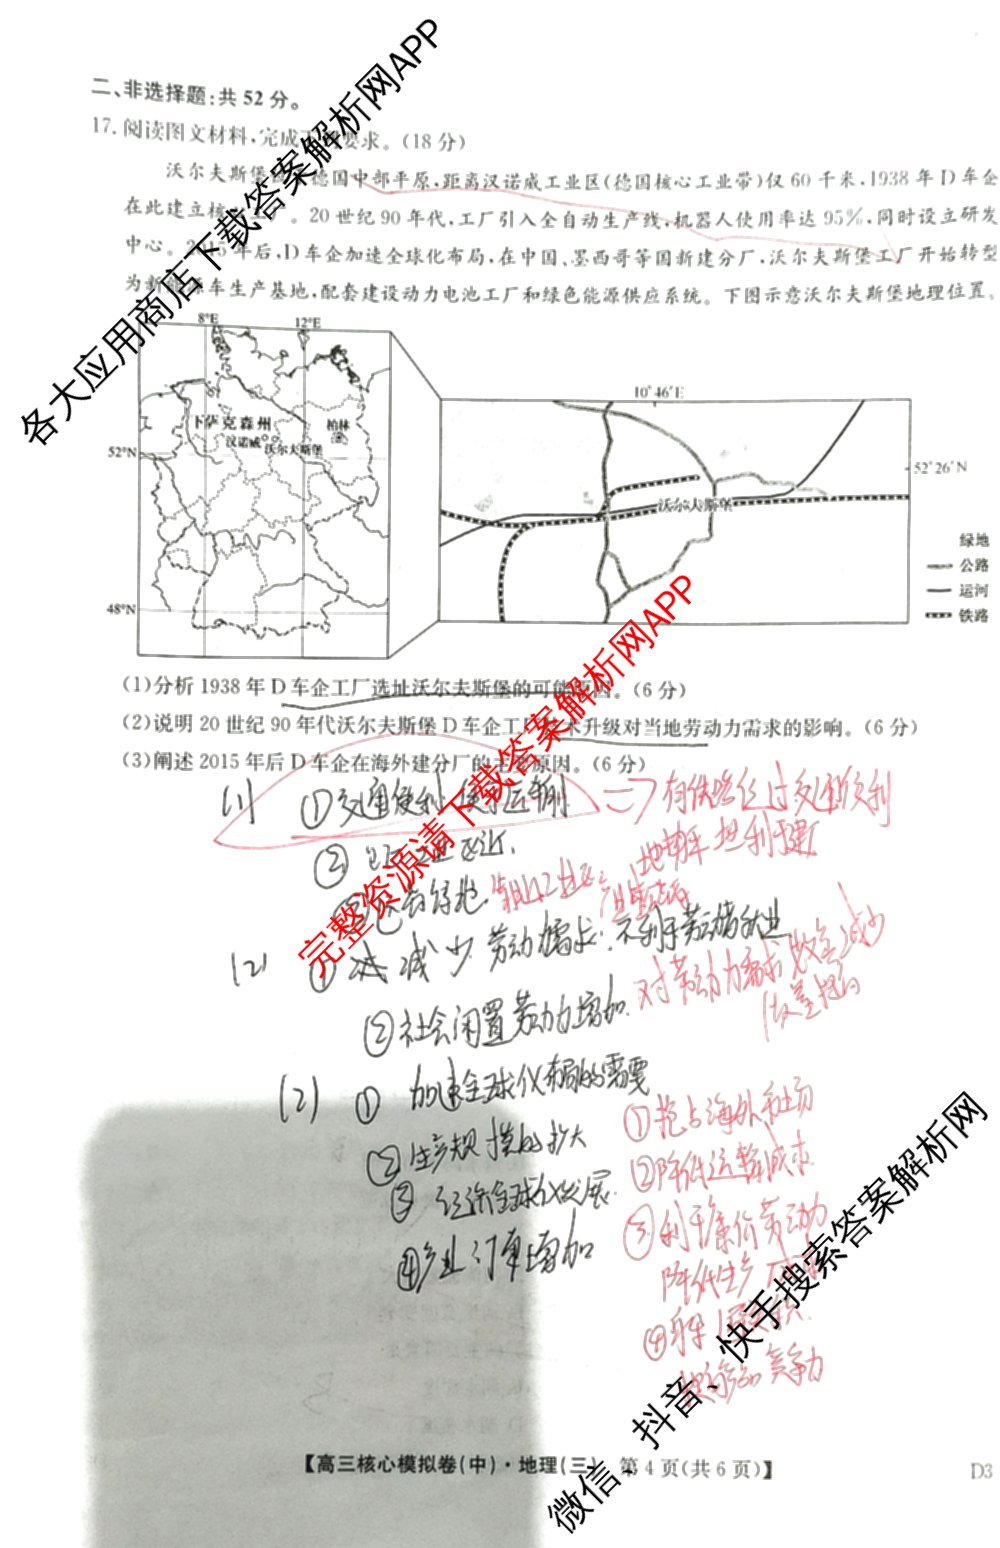 二、非选择题:共 52 分。
17. 阅读图文材料,完成下列要求。(18 分)
沃尔夫斯堡 德国中部平原,距离汉诺威工业区(德国核心工业带)仅 60 千米,1938 年 D 车企
在此建立核 工厂。20 世纪 90 年代,工厂引入全自动生产线,机器人使用率达 95%,同时设立研发
中心。2015 年后,D 车企加速全球化布局,在中国、墨西哥等国新建分厂,沃尔夫斯堡工厂开始转型
为新能源车生产基地,配套建设动力电池工厂和绿色能源供应系统。下图示意沃尔夫斯堡地理位置。
8°E 12°E
下萨克森州
汉诺威 沃尔夫斯堡
柏林
52°N
48°N
10°46′E
52°26′N
沃尔夫斯堡
绿地
公路
运河
铁路
(1)分析 1938 年 D 车企工厂选址沃尔夫斯堡的可能原因。(6 分)
(2)说明 20 世纪 90 年代沃尔夫斯堡 D 车企工厂技术升级对当地劳动力需求的影响。(6 分)
(3)阐述 2015 年后 D 车企在海外建分厂的主要原因。(6 分)
(1) ①交通便利 便于运输
②
(2) ① 减少劳动需求,不利于劳动者就业
对劳动力需求数量减少
②社会闲置劳动力增加
(2) ① 加速全球化布局的需要
②生产规模的扩大
③ 经济全球化发展
④产业订单增加
①抢占海外市场
②降低运输成本
③利于廉价劳动力
降低生产
④
竞争力
【高三核心模拟卷(中)·地理(三) 第 4 页(共 6 页)】
D3
各大应用商店下载答案解析网APP
完整资源请下载答案解析网APP
微信、抖音、快手搜索答案解析网